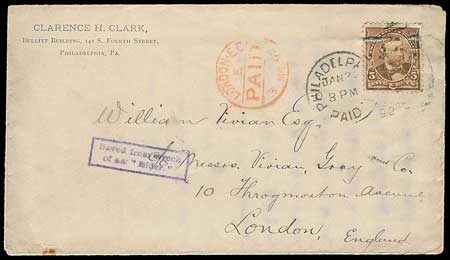 CLARENCE H. CLARK,
BULLITT BUILDING, 141 S. FOURTH STREET,
PHILADELPHIA, PA.
LONDON E.C
PAID
PHILADELPH
JAN 2
3 PM
PAID
92
5
5
William Vivian Esq.
Saved from wreck
of ss. "Eider."
Messrs. Vivian, Gray and Co.
10 Throgmorton Avenue,
London,
England